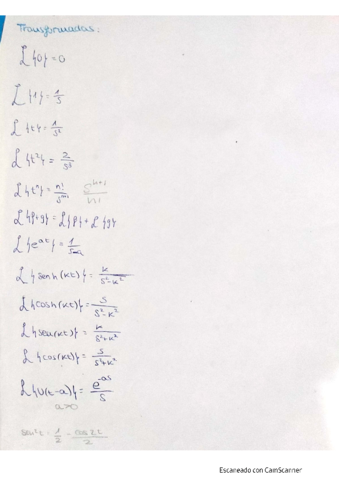 Transformadas:
L{0} = 0
L{1} = 1/s
L{t} = 1/s²
L{t²} = 2/s³
L{tⁿ} = n!/sⁿ⁺¹ sⁿ⁺¹/n!
L{f+g} = L{f} + L{g}
L{e^at} = 1/s-a
L{senh(kt)} = k/s²-k²
L{cosh(kt)} = s/s²-k²
L{sen(kt)} = k/s²+k²
L{cos(kt)} = s/s²+k²
L{U(t-a)} = e^-as/s
a>0
sen²t = 1/2 - cos2t/2
Escaneado con CamScanner